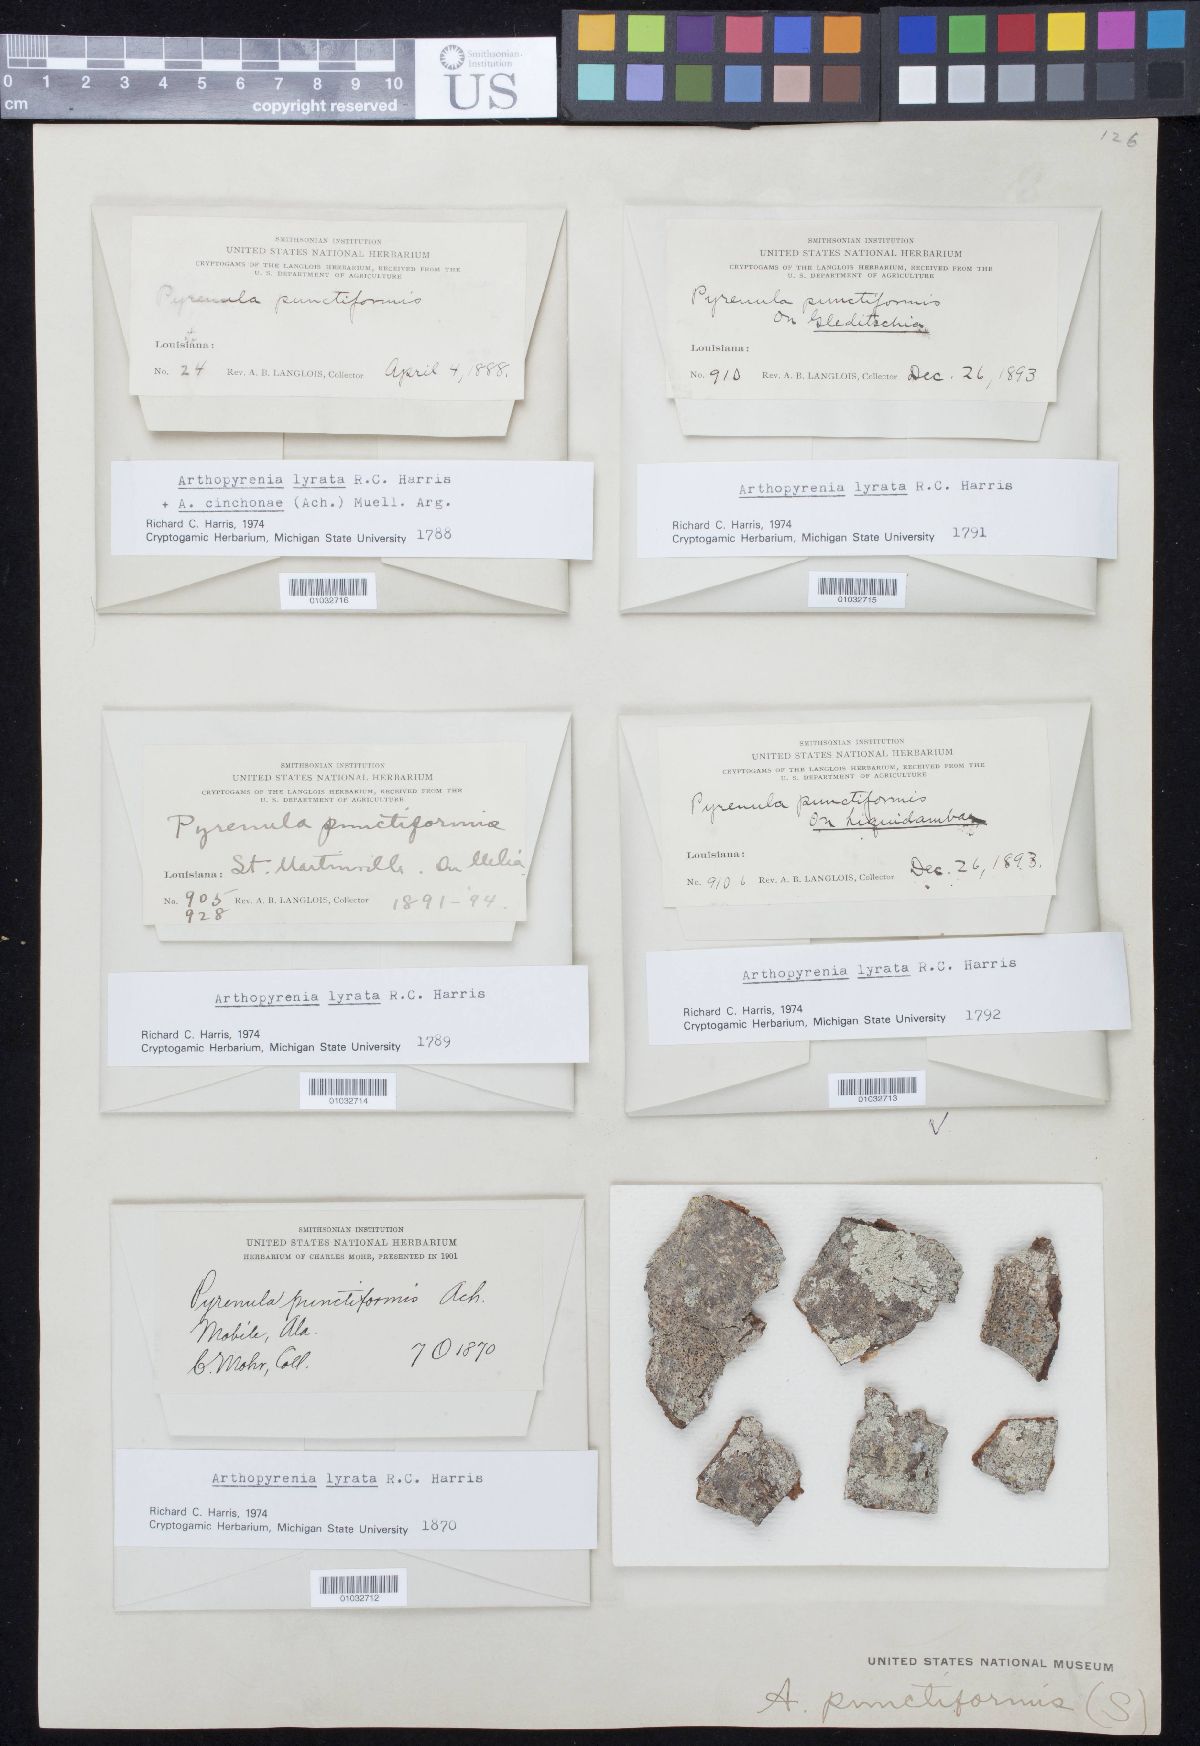 0 1 2 3 4 5 6 7 8 9 10
cm
copyright reserved
Smithsonian
Institution
US
126
SMITHSONIAN INSTITUTION
UNITED STATES NATIONAL HERBARIUM
CRYPTOGAMS OF THE LANGLOIS HERBARIUM, RECEIVED FROM THE
U. S. DEPARTMENT OF AGRICULTURE
Pyrenula punctiformis
Louisiana:
No. 24 Rev. A. B. LANGLOIS, Collector April 4, 1888.
Arthopyrenia lyrata R.C. Harris
+ A. cinchonae (Ach.) Muell. Arg.
Richard C. Harris, 1974
Cryptogamic Herbarium, Michigan State University 1788
01032716
SMITHSONIAN INSTITUTION
UNITED STATES NATIONAL HERBARIUM
CRYPTOGAMS OF THE LANGLOIS HERBARIUM, RECEIVED FROM THE
U. S. DEPARTMENT OF AGRICULTURE
Pyrenula punctiformis
On Gleditschia
Louisiana:
No. 910 Rev. A. B. LANGLOIS, Collector Dec. 26, 1893
Arthopyrenia lyrata R.C. Harris
Richard C. Harris, 1974
Cryptogamic Herbarium, Michigan State University 1791
01032715
SMITHSONIAN INSTITUTION
UNITED STATES NATIONAL HERBARIUM
CRYPTOGAMS OF THE LANGLOIS HERBARIUM, RECEIVED FROM THE
U. S. DEPARTMENT OF AGRICULTURE
Pyrenula punctiformis
Louisiana: St. Martinville. On Melia
No. 905 Rev. A. B. LANGLOIS, Collector 1891-'94.
928
Arthopyrenia lyrata R.C. Harris
Richard C. Harris, 1974
Cryptogamic Herbarium, Michigan State University 1789
01032714
SMITHSONIAN INSTITUTION
UNITED STATES NATIONAL HERBARIUM
CRYPTOGAMS OF THE LANGLOIS HERBARIUM, RECEIVED FROM THE
U. S. DEPARTMENT OF AGRICULTURE
Pyrenula punctiformis
On Liquidambar
Louisiana:
No. 910 b Rev. A. B. LANGLOIS, Collector Dec. 26, 1893.
Arthopyrenia lyrata R.C. Harris
Richard C. Harris, 1974
Cryptogamic Herbarium, Michigan State University 1792
01032713
SMITHSONIAN INSTITUTION
UNITED STATES NATIONAL HERBARIUM
HERBARIUM OF CHARLES MOHR, PRESENTED IN 1901
Pyrenula punctiformis Ach.
Mobile, Ala.
C. Mohr, Coll. 7 O 1870
Arthopyrenia lyrata R.C. Harris
Richard C. Harris, 1974
Cryptogamic Herbarium, Michigan State University 1870
01032712
UNITED STATES NATIONAL MUSEUM
A. punctiformis (S)